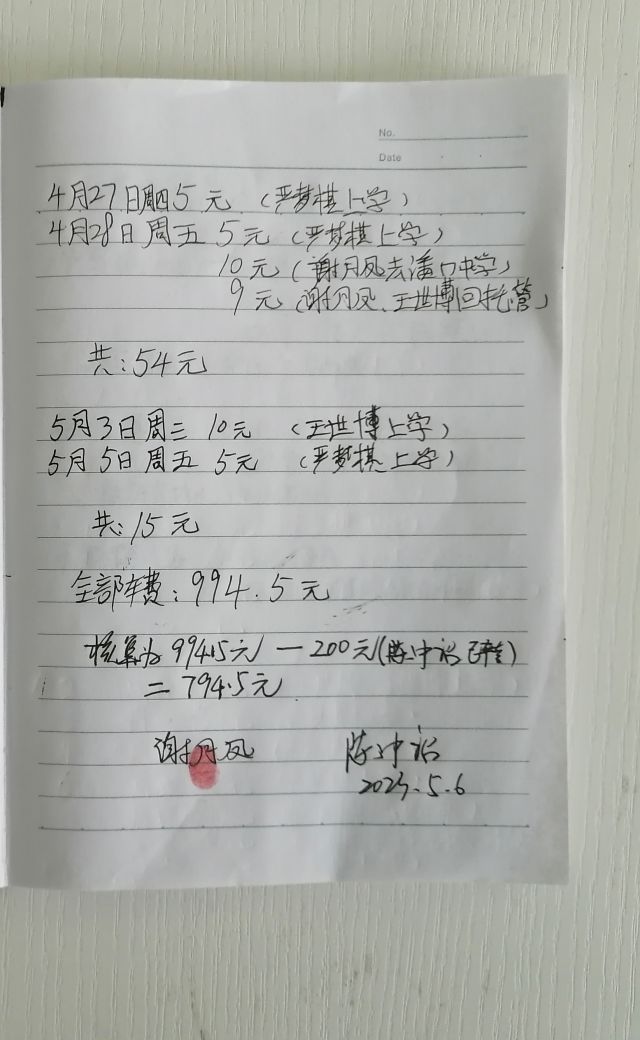 No.
Date
4月27日周四 5元 (严梦棋上学)
4月28日周五 5元 (严梦棋上学)
10元 (谢月凤去潘口中学)
9元 (谢月凤、王世博回托管)
共:54元
5月3日周三 10元 (王世博上学)
5月5日周五 5元 (严梦棋上学)
共:15元
全部车费:994.5元
核算为 994.5元 — 200元(陈冲
= 794.5元
谢月凤 陈冲
2023.5.6